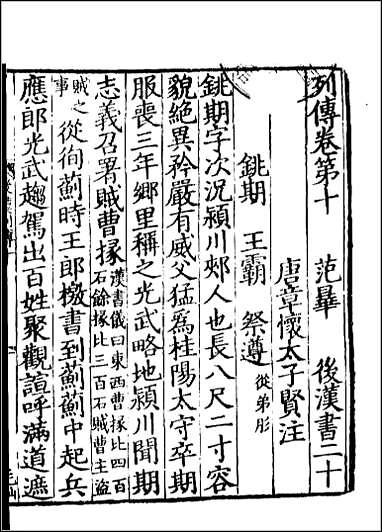 列傳卷第十　范曄　後漢書二十
唐章懷太子賢注
銚期　王霸　祭遵從弟肜
銚期字次況潁川郟人也長八尺二寸容
貌絶異矜嚴有威父猛爲桂陽太守卒期
服喪三年鄉里稱之光武略地潁川聞期
志義召署賊曹掾漢書儀曰東西曹掾比四百石餘掾比三百石賊曹主盜
賊之事從徇薊時王郎檄書到薊薊中起兵
應郎光武趨駕出百姓聚觀諠呼滿道遮